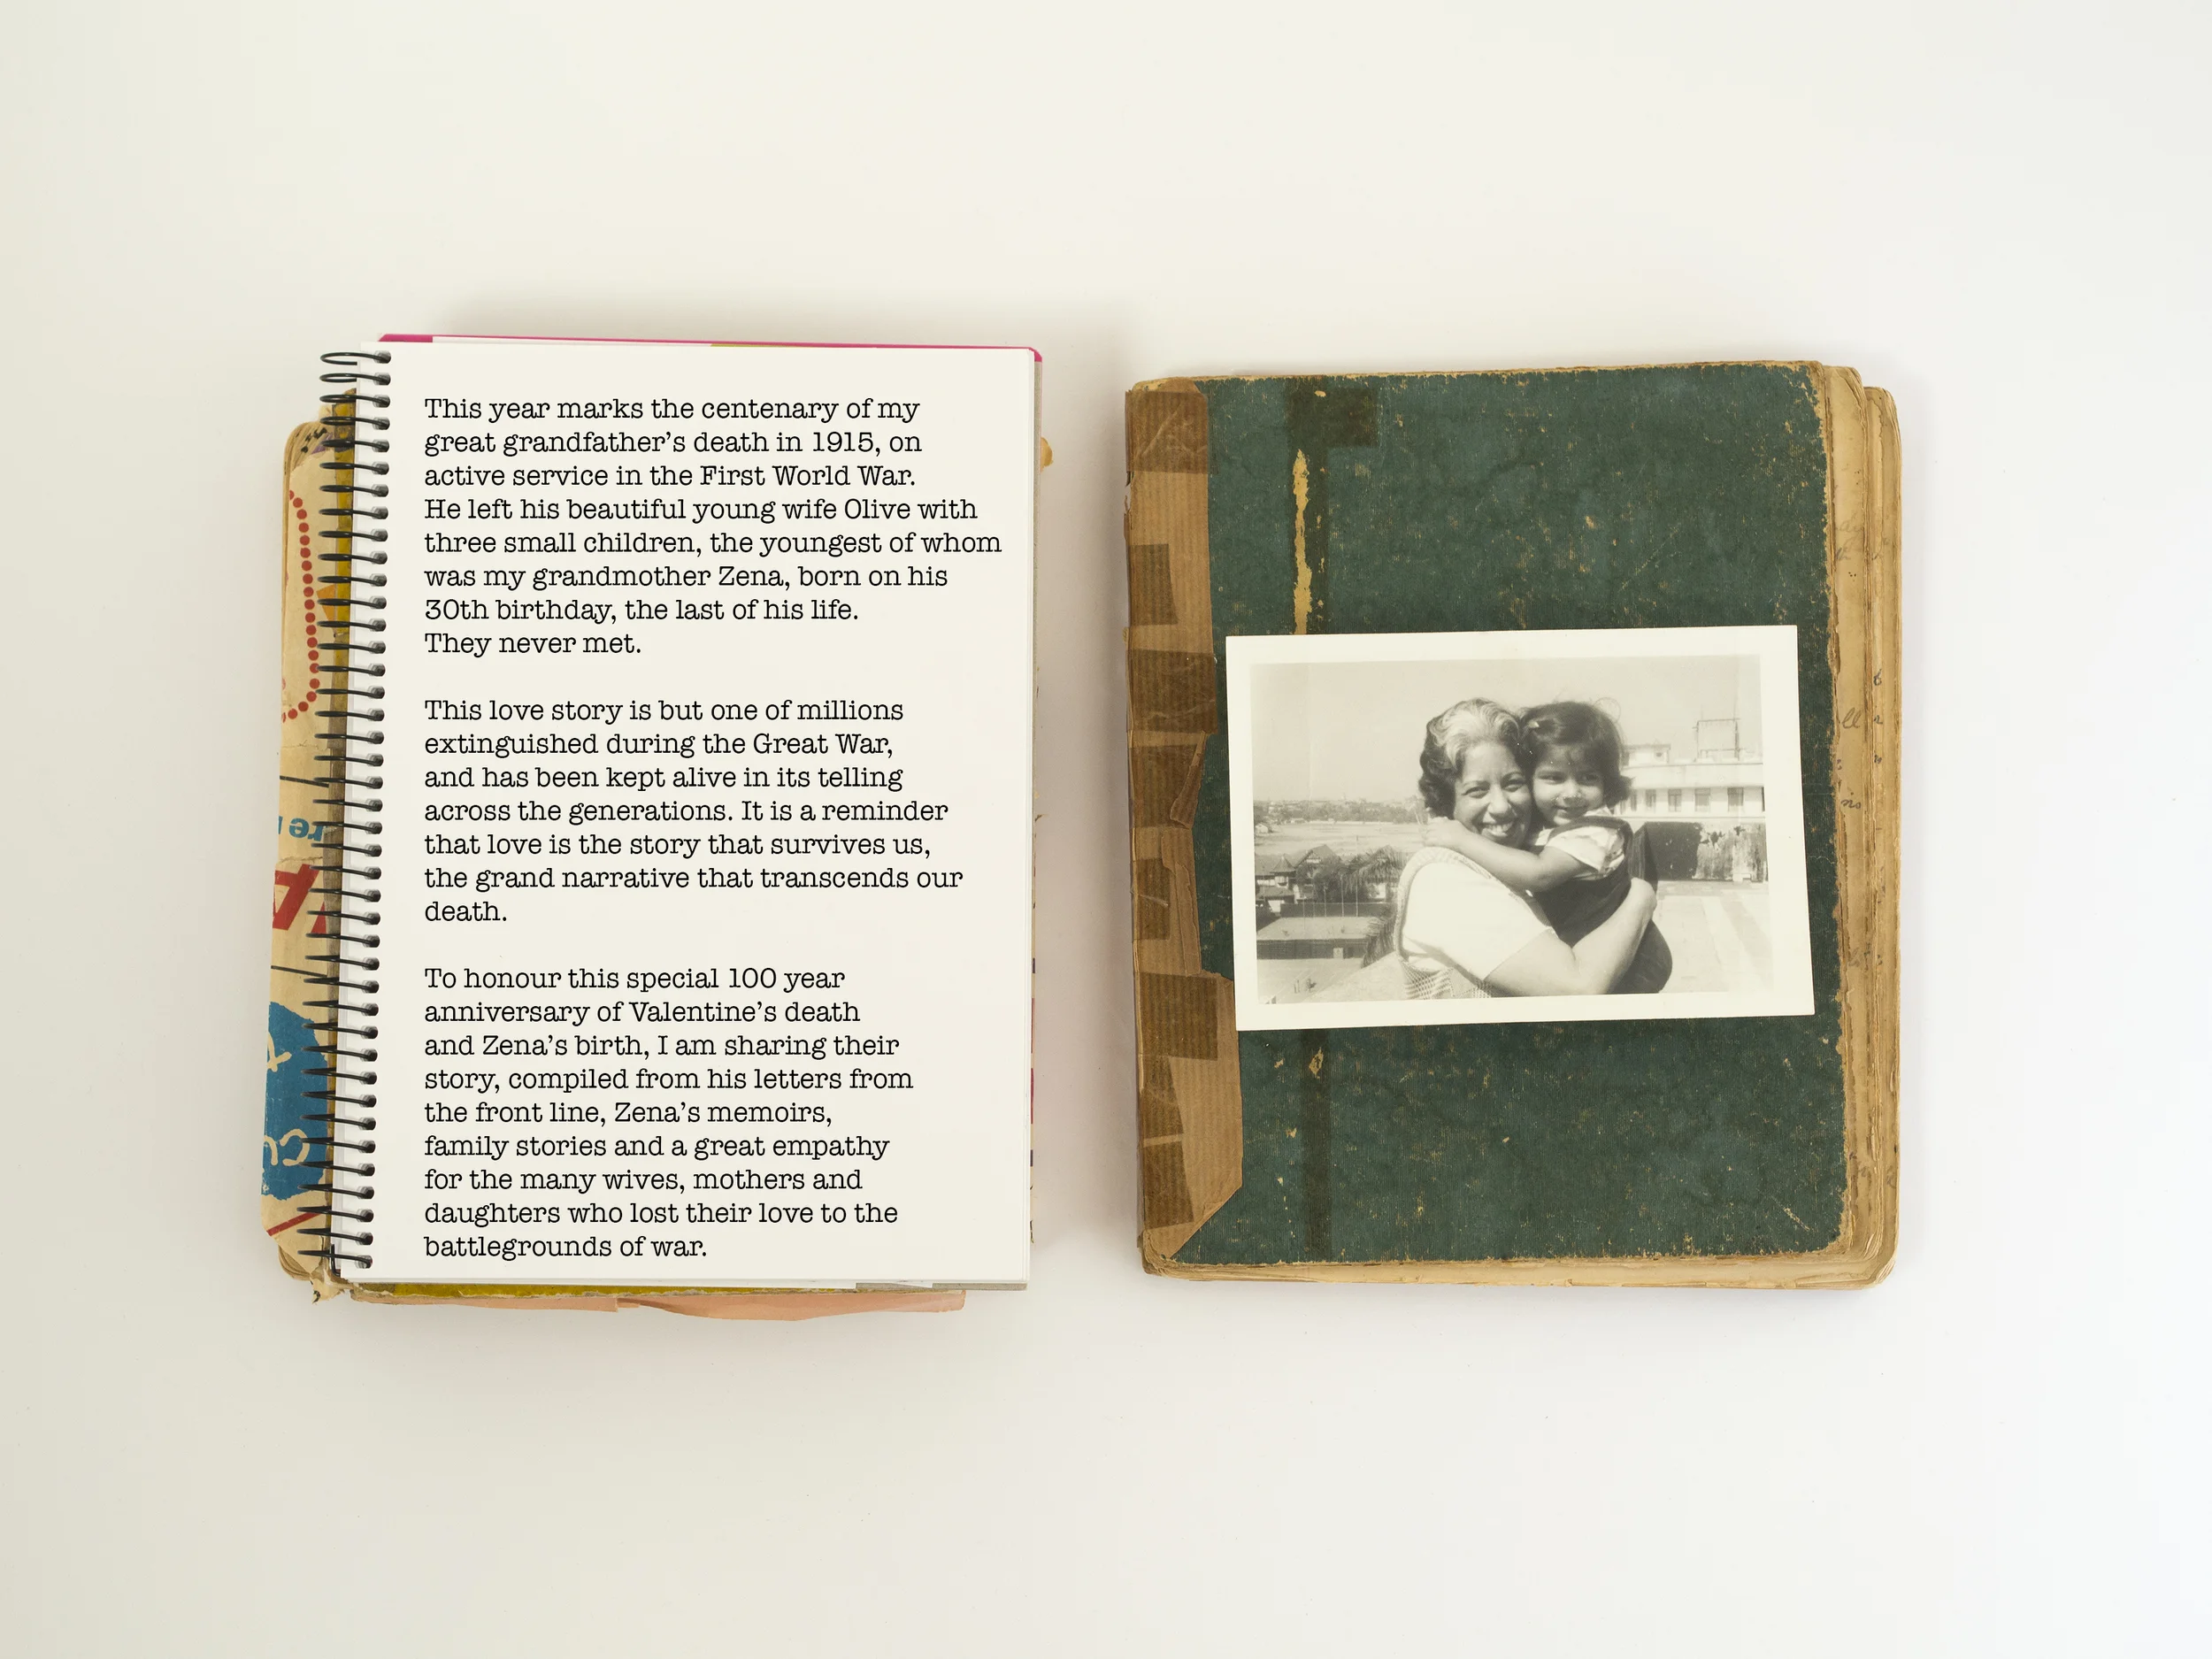 This year marks the centenary of my
great grandfather’s death in 1915, on
active service in the First World War.
He left his beautiful young wife Olive with
three small children, the youngest of whom
was my grandmother Zena, born on his
30th birthday, the last of his life.
They never met.
This love story is but one of millions
extinguished during the Great War,
and has been kept alive in its telling
across the generations. It is a reminder
that love is the story that survives us,
the grand narrative that transcends our
death.
To honour this special 100 year
anniversary of Valentine’s death
and Zena’s birth, I am sharing their
story, compiled from his letters from
the front line, Zena’s memoirs,
family stories and a great empathy
for the many wives, mothers and
daughters who lost their love to the
battlegrounds of war.